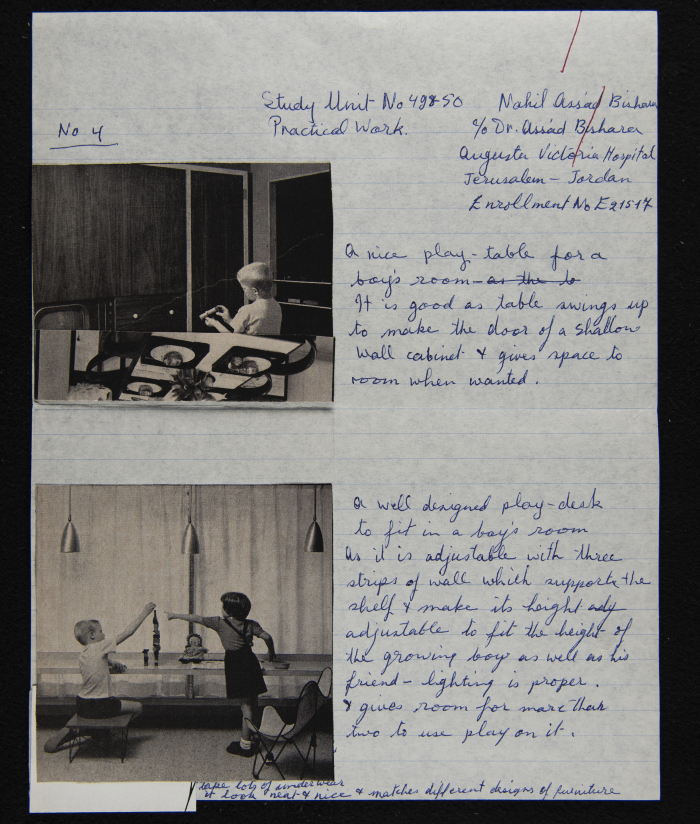 Study Unit No 49&50
Practical Work.
No 4
Nahil Assad Bishara
c/o Dr. Assad Bishara
Augusta Victoria Hospital
Jerusalem - Jordan
Enrollment No E21517
A nice play-table for a
boy's room - as the to
It is good as table swings up
to make the door of a shallow
wall cabinet & gives space to
room when wanted.
A well designed play-desk
to fit in a boy's room
As it is adjustable with three
strips of wall which supports the
shelf & make its height ady
adjustable to fit the height of
the growing boy as well as his
friend - lighting is proper.
& gives room for more than
two to use play on it.
take lots of underwear
it look neat & nice & matches different designs of furniture